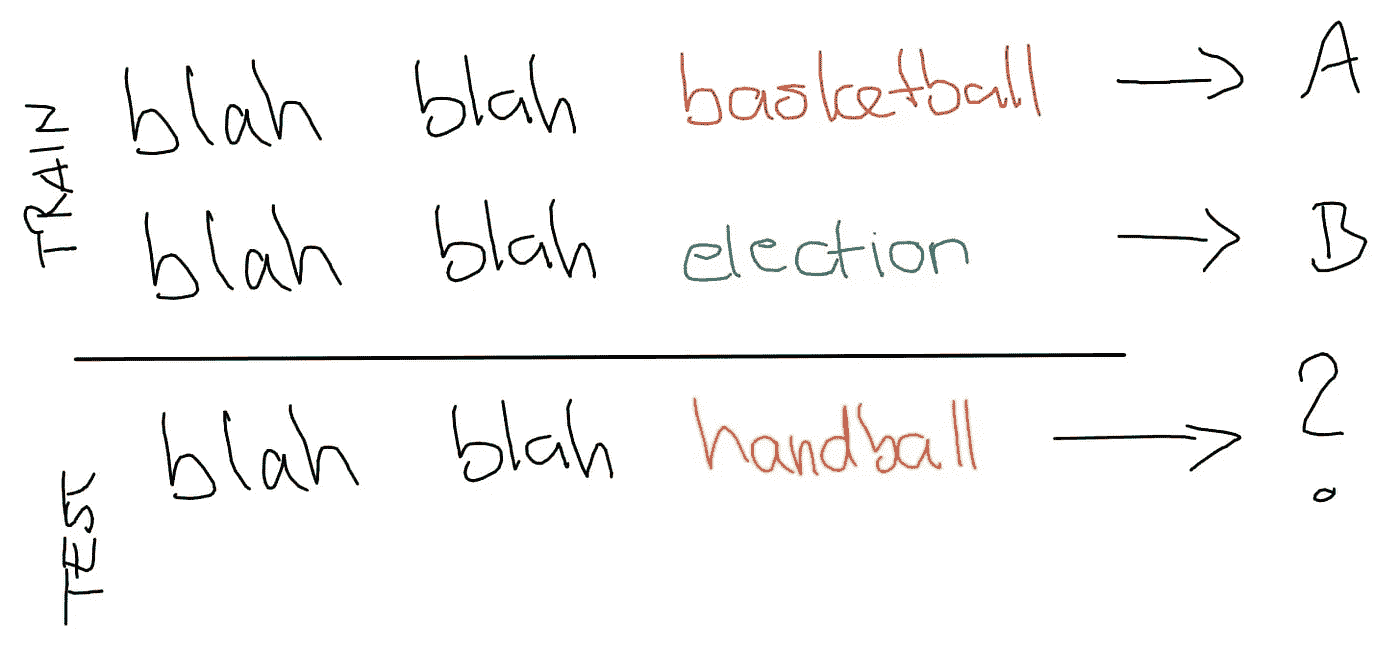 TRAIN
blah blah basketball → A
blah blah election → B
TEST
blah blah handball → ?